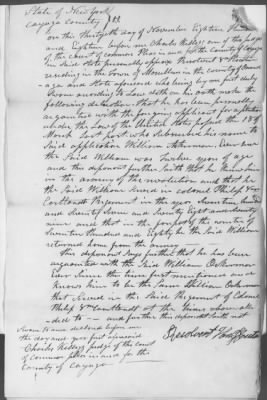 State of New York
Cayuga County } SS
On this thirtyth day of November Eighteen Hundred
and Eighteen before me Charles Kellogg one of the Judges
of the court of common Pleas in and for the County of Cayuga
in said State personally appeared
residing in the town of in the county of
aga and State aforesaid who being by me first duly
sworn according to Law doth on his oath make the
following declaration that he has been personally
acquainted with the foregoing applicant for a pension
under the Law of the United States before the 18th
March last past who subscribes his name to
said application William
the said William was twelve years of age
and this deponent further saith that he knew him
in the armies of the revolution and that he
the said William served in colonel Philip Van
Cortlandt Regiment in the years Seventeen hundred
and Seventy Seven and Seventy Eight and Seventy
nine and that in the forepart of the month of
Seventeen Hundred and Eighty he the said William
returned home from the army
this deponent says further that he has been
acquainted with the said William
Ever since the time first mentioned and
knows him to be the same William
that served in the said Regiment of Colonel
Philip V Cortlandt at the times above
ded to — and further this deponent saith not
Sworn to and declared before me
the day and year first aforesaid
Charles Kellogg Judge of the court
of common pleas in and for the
County of Cayuga